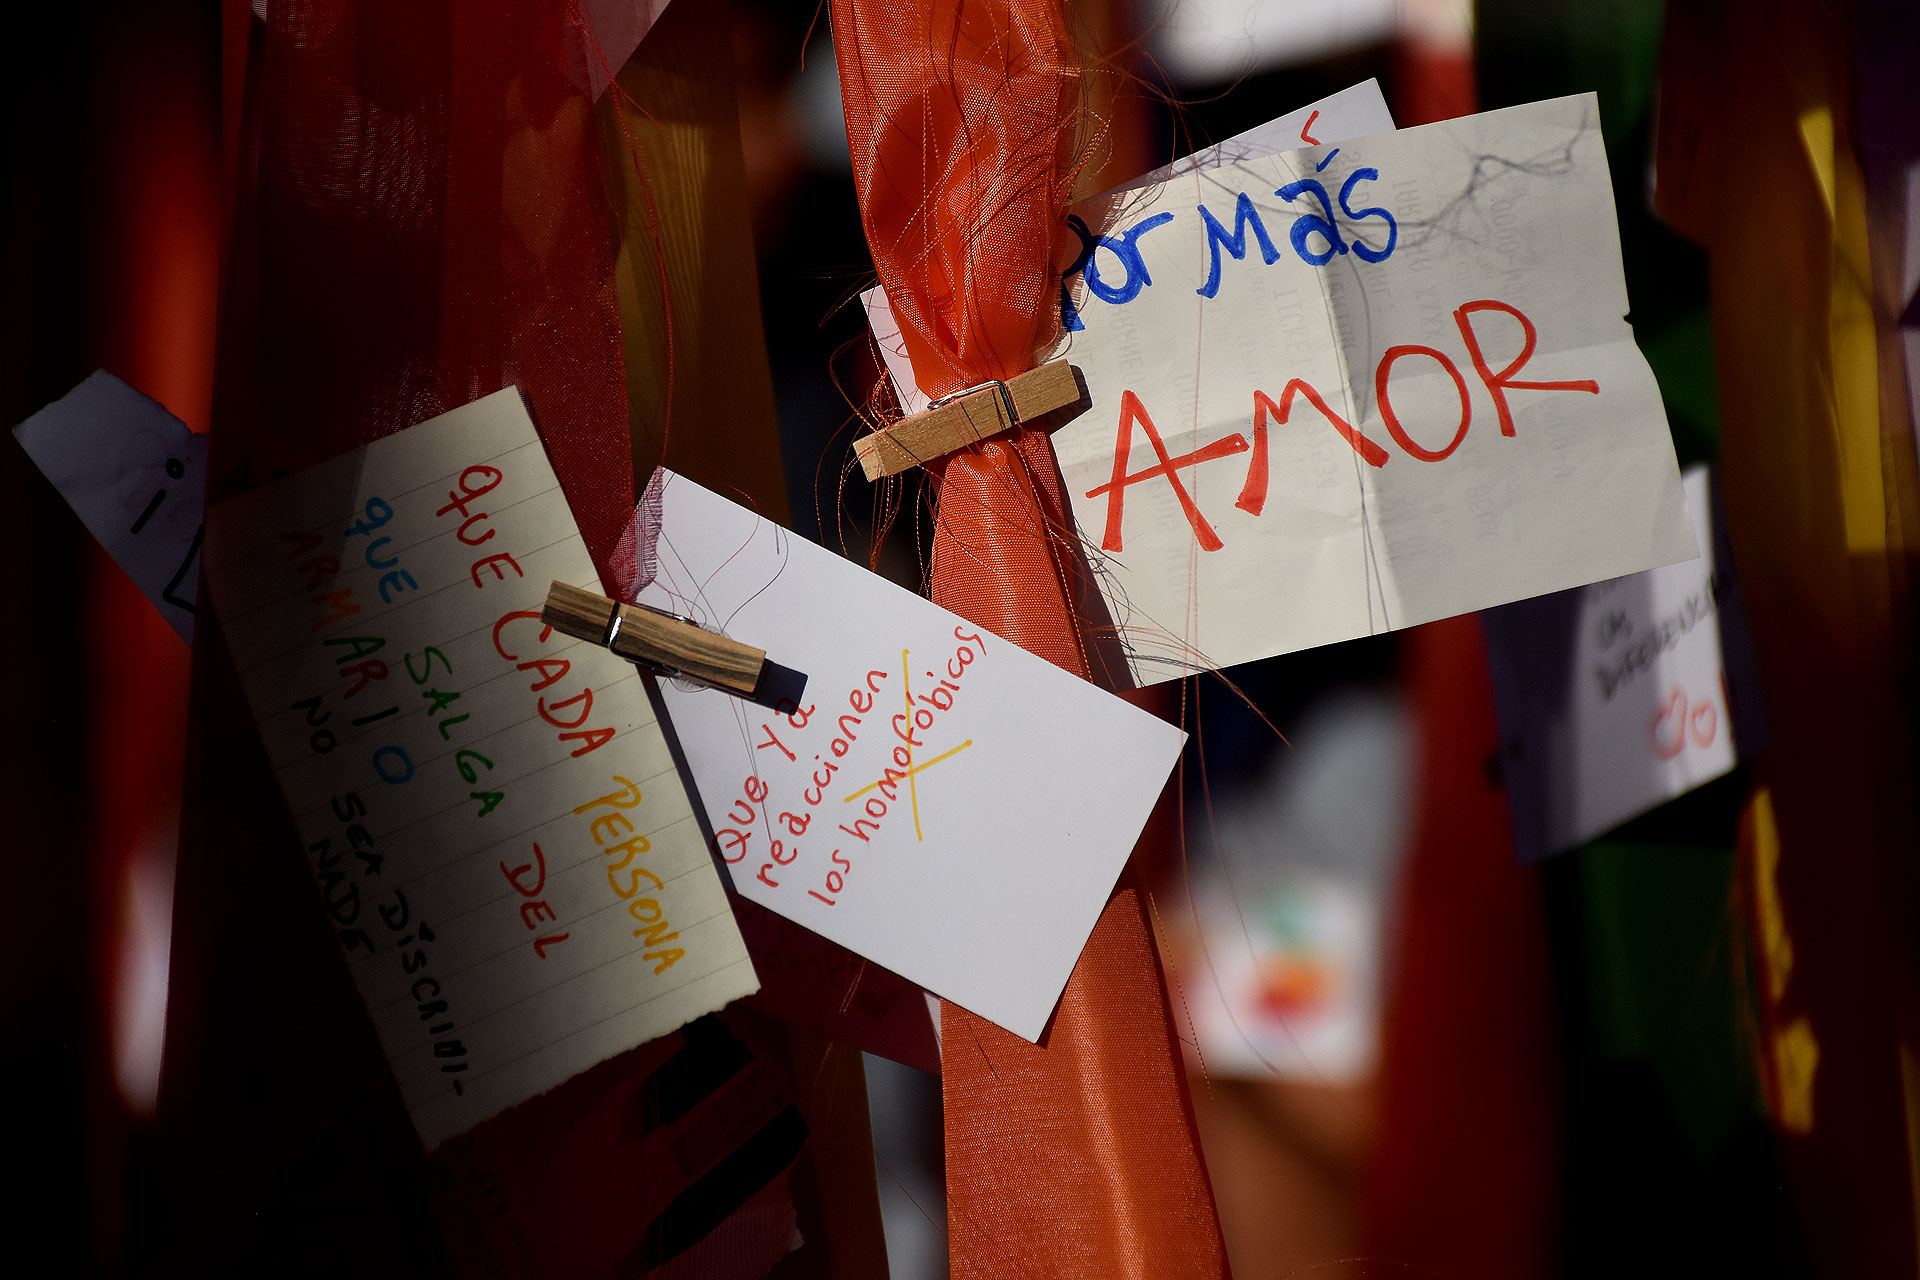 QUE CADA PERSONA
QUE SALGA DEL
ARMARIO
NO SEA DISCRIMI-
NADE
Que ya
reaccionen
los homofóbicos
Por MÁS
AMOR
DIFERENCIAS